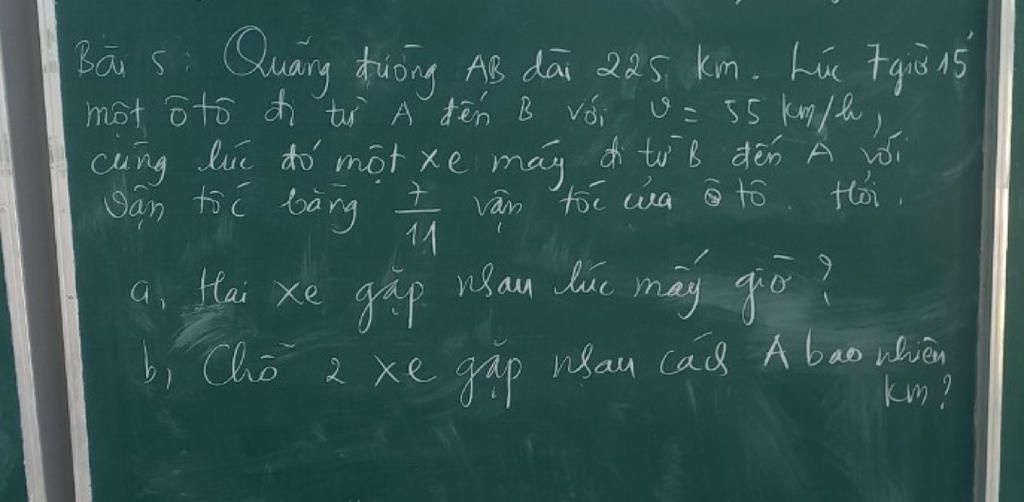 Bài 5: Quãng đường AB dài 225 km. Lúc 7 giờ 15'
một ô tô đi từ A đến B với v = 55 km/h,
cùng lúc đó một xe máy đi từ B đến A với
vận tốc bằng 7/11 vận tốc của ô tô. Hỏi.
a, Hai xe gặp nhau lúc mấy giờ?
b, Chỗ 2 xe gặp nhau cách A bao nhiêu
km?